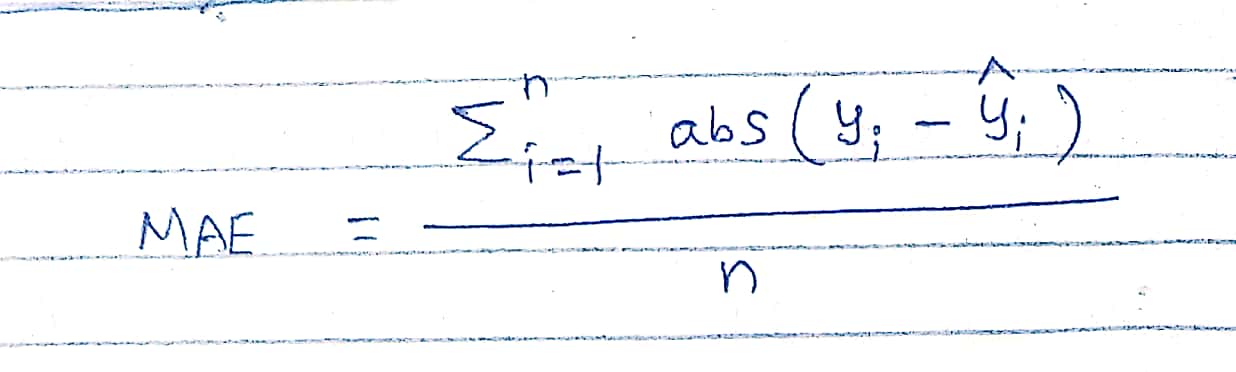 MAE = \frac{\sum_{i=1}^{n} abs(y_i - \hat{y}_i)}{n}